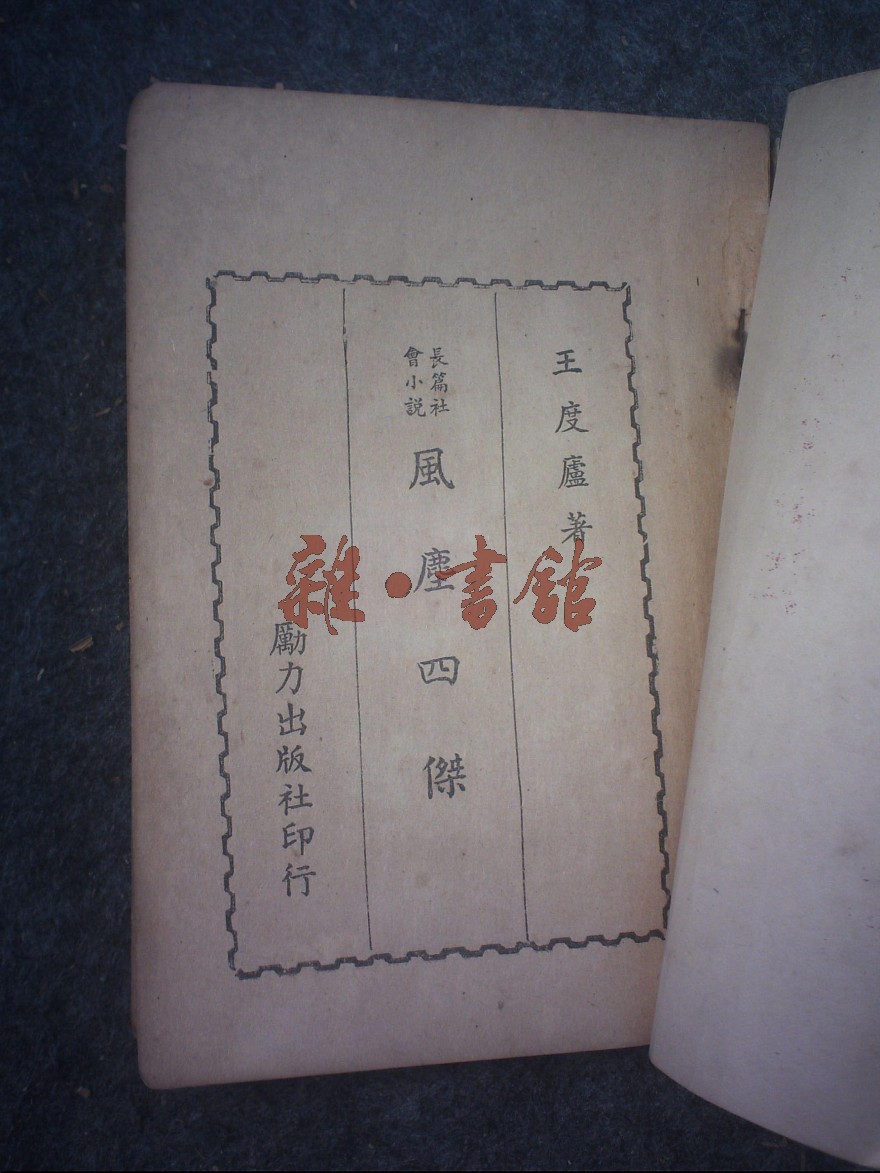 王度廬著
長篇社
會小説
風塵四傑
勵力出版社印行
雜·書館